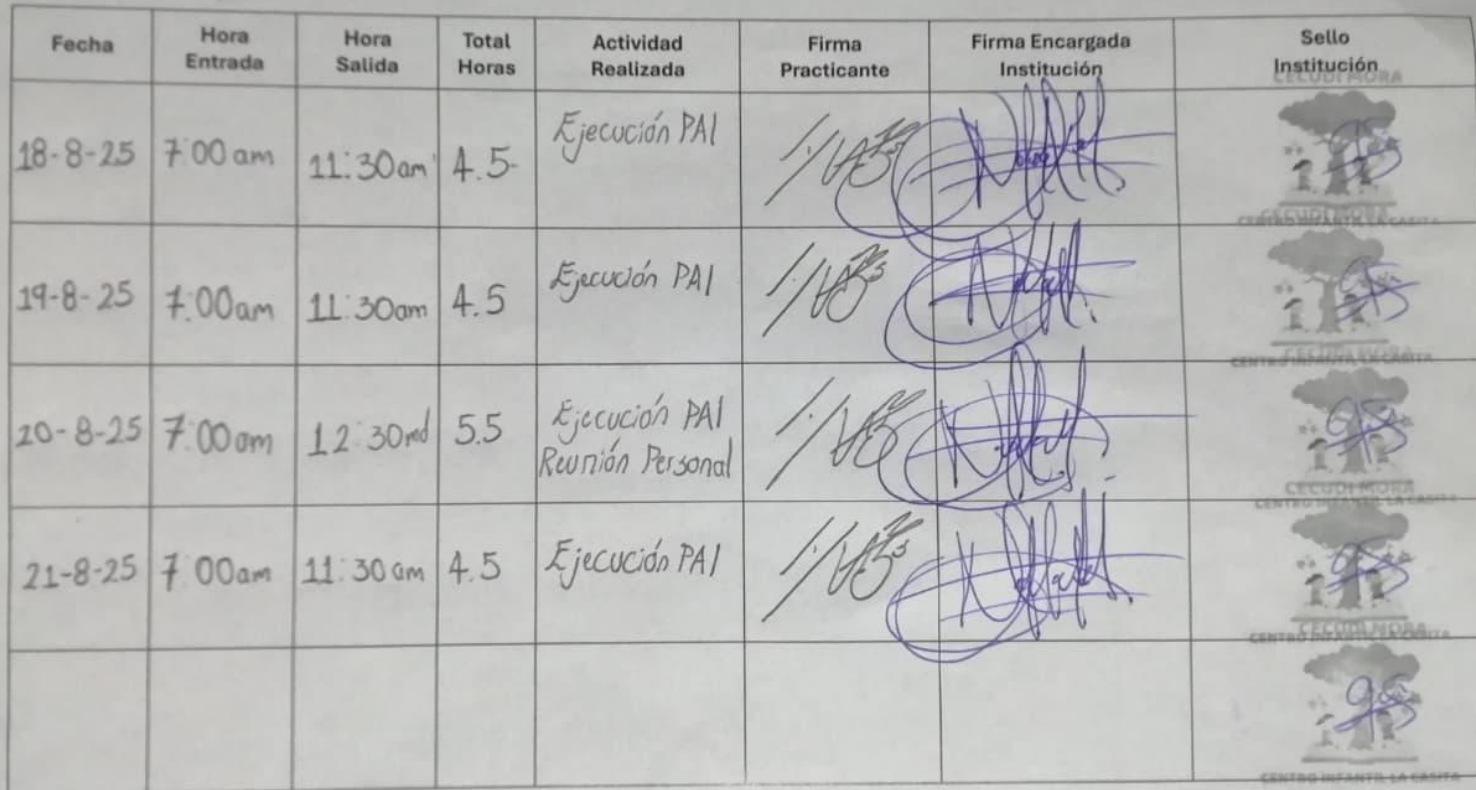 Fecha Hora Entrada Hora Salida Total Horas Actividad Realizada Firma Practicante Firma Encargada Institución Sello Institución
CECUDI MORA
18-8-25 7:00 am 11:30am 4.5 Ejecución PAI
CENTRO INFANTIL LA CASITA
CECUDI MORA
19-8-25 7:00am 11:30am 4.5 Ejecución PAI
CENTRO INFANTIL LA CASITA
CECUDI MORA
20-8-25 7:00am 12:30md 5.5 Ejecución PAI
Reunión Personal
CENTRO INFANTIL LA CASITA
CECUDI MORA
21-8-25 7:00am 11:30am 4.5 Ejecución PAI
CENTRO INFANTIL LA CASITA
CECUDI MORA
CENTRO INFANTIL LA CASITA